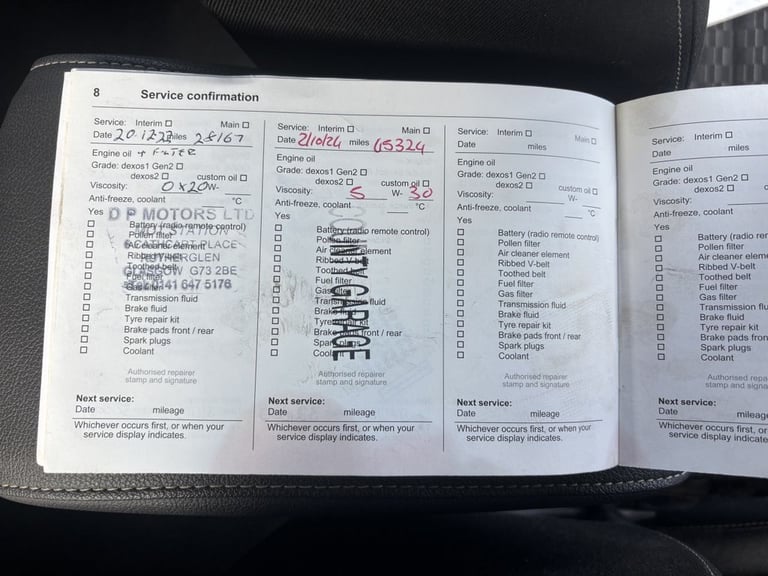 8 Service confirmation
Service: Interim ☐ Main ☐
Date 20.12.22 miles 28167
Engine oil + FILTER
Grade: dexos1 Gen2 ☐
dexos2 ☐ custom oil ☐
Viscosity: 0x20W-
Anti-freeze, coolant °C
Yes
D P MOTORS LTD
MOT STATION
CATHCART PLACE
RUTHERGLEN
GLASGOW G73 2BE
0141 647 5176
☐ Battery (radio remote control)
☐ Pollen filter
☐ Air cleaner element
☐ Ribbed V-belt
☐ Toothed belt
☐ Fuel filter
☐ Gas filter
☐ Transmission fluid
☐ Brake fluid
☐ Tyre repair kit
☐ Brake pads front / rear
☐ Spark plugs
☐ Coolant
Authorised repairer
stamp and signature
Next service:
Date mileage
Whichever occurs first, or when your
service display indicates.
Service: Interim ☐ Main ☐
Date 2/10/24 miles 65324
Engine oil
Grade: dexos1 Gen2 ☐
dexos2 ☐ custom oil ☐
Viscosity: 5 W- 30
Anti-freeze, coolant °C
Yes
COUNTY GARAGE
☐ Battery (radio remote control)
☐ Pollen filter
☐ Air cleaner element
☐ Ribbed V-belt
☐ Toothed belt
☐ Fuel filter
☐ Gas filter
☐ Transmission fluid
☐ Brake fluid
☐ Tyre repair kit
☐ Brake pads front / rear
☐ Spark plugs
☐ Coolant
Authorised repairer
stamp and signature
Next service:
Date mileage
Whichever occurs first, or when your
service display indicates.
Service: Interim ☐ Main ☐
Date miles
Engine oil
Grade: dexos1 Gen2 ☐
dexos2 ☐ custom oil ☐
Viscosity: W-
Anti-freeze, coolant °C
Yes
☐ Battery (radio remote control)
☐ Pollen filter
☐ Air cleaner element
☐ Ribbed V-belt
☐ Toothed belt
☐ Fuel filter
☐ Gas filter
☐ Transmission fluid
☐ Brake fluid
☐ Tyre repair kit
☐ Brake pads front / rear
☐ Spark plugs
☐ Coolant
Authorised repairer
stamp and signature
Next service:
Date mileage
Whichever occurs first, or when your
service display indicates.
Service: Interim ☐
Date miles
Engine oil
Grade: dexos1 Gen2 ☐
dexos2 ☐ c
Viscosity:
Anti-freeze, coolant
Yes
☐ Battery (radio rer
☐ Pollen filter
☐ Air cleaner elem
☐ Ribbed V-belt
☐ Toothed belt
☐ Fuel filter
☐ Gas filter
☐ Transmission flu
☐ Brake fluid
☐ Tyre repair kit
☐ Brake pads fron
☐ Spark plugs
☐ Coolant
Authorised repa
stamp and signa
Next service:
Date mileag
Whichever occurs first, or
service display indicate